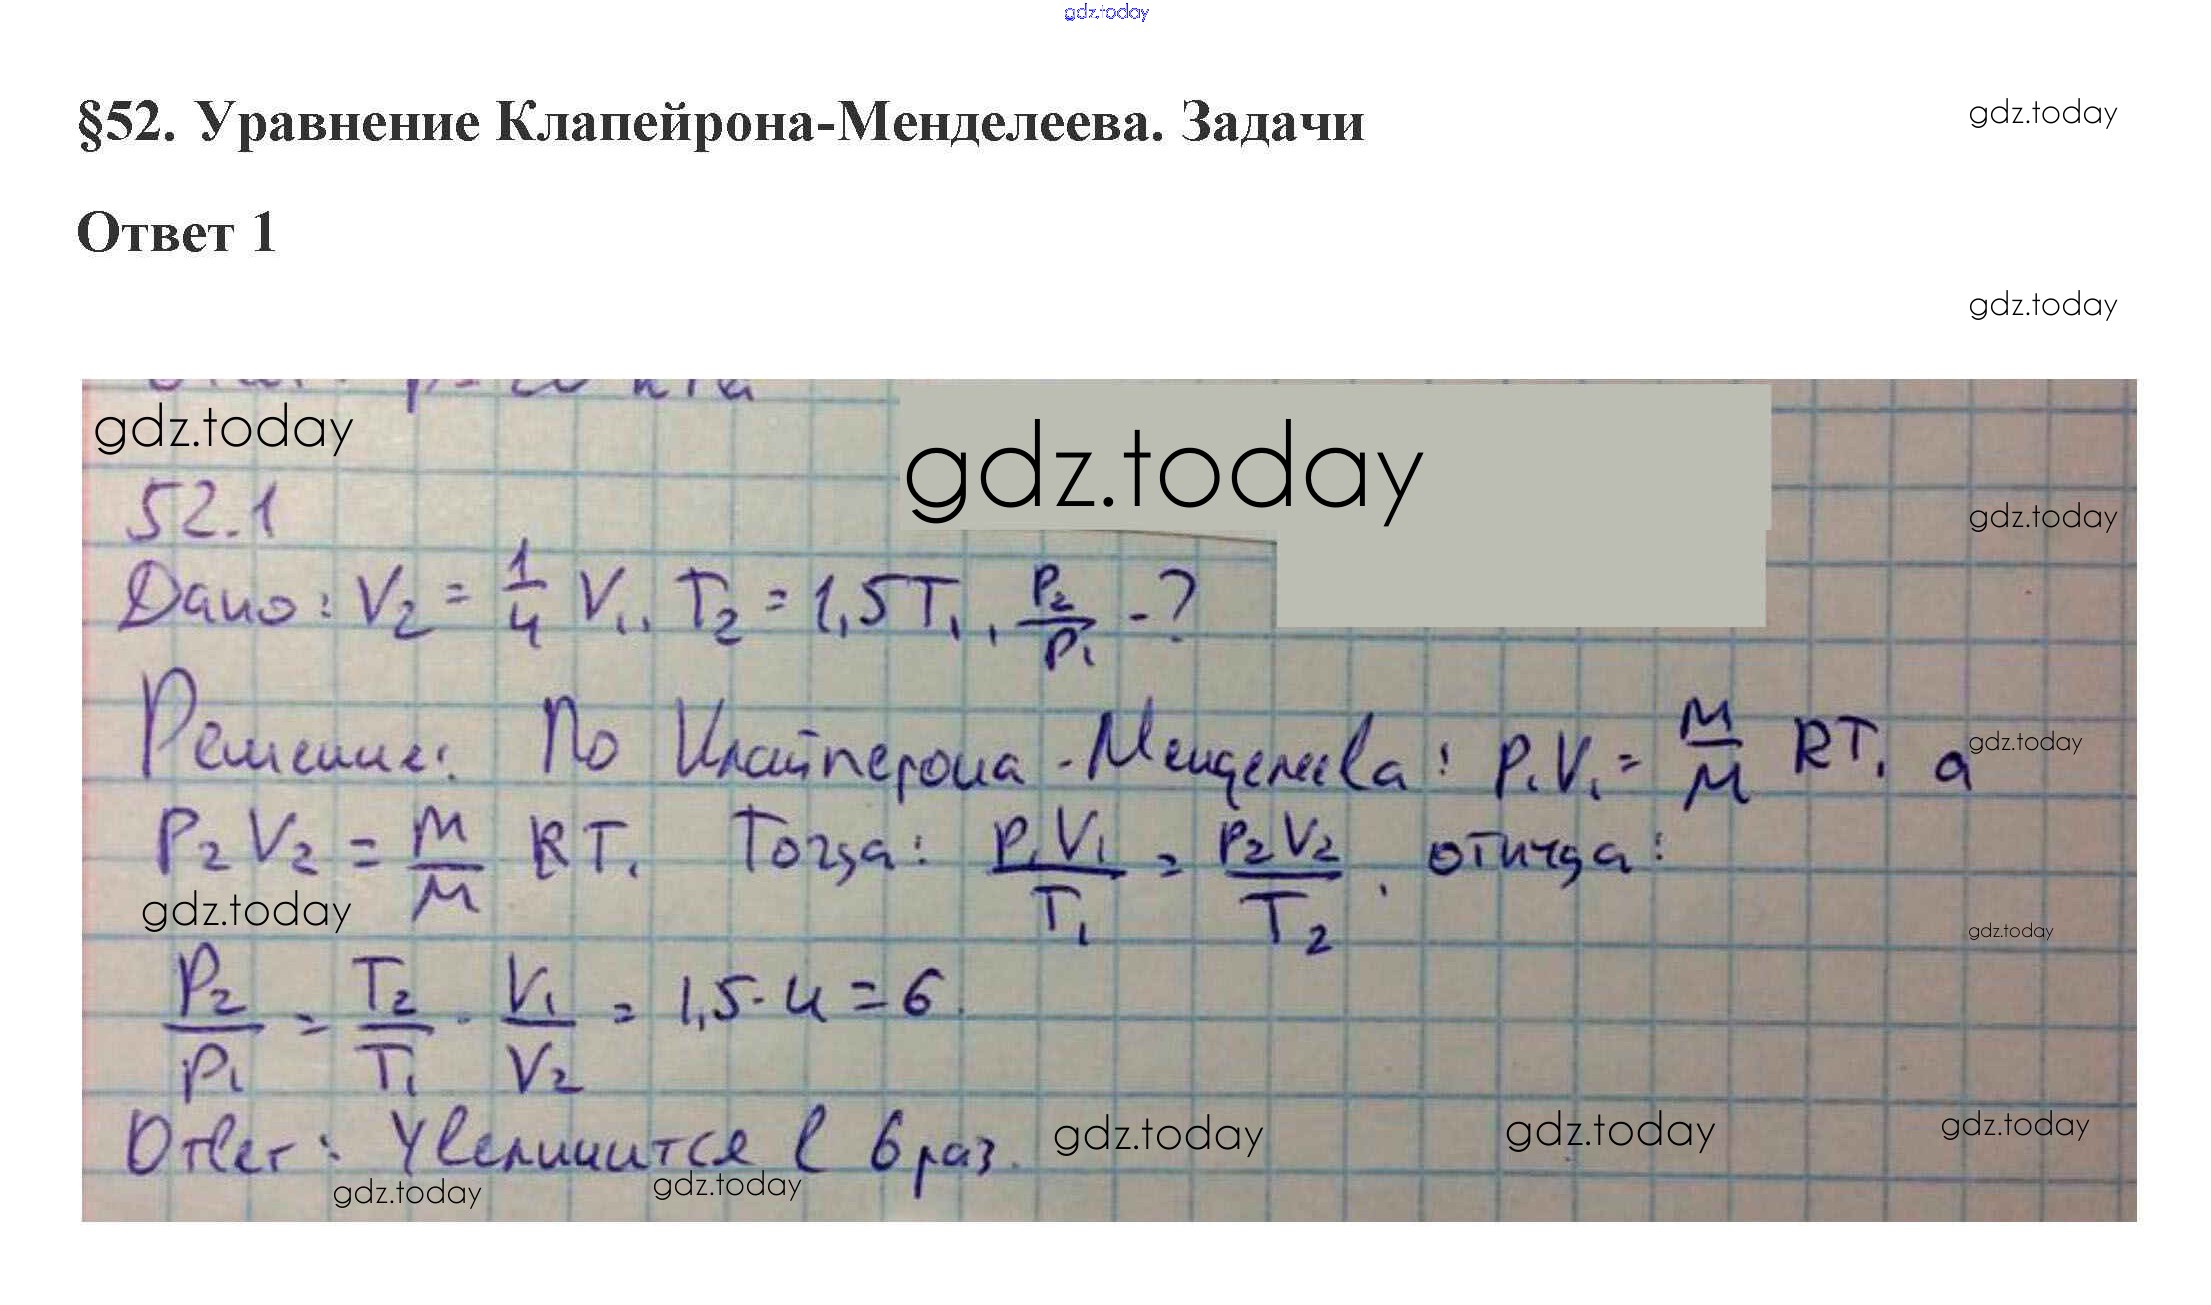 gdz.today
§52. Уравнение Клапейрона-Менделеева. Задачи
gdz.today
Ответ 1
gdz.today
gdz.today
gdz.today
52.1
gdz.today
Дано: V₂ = 1/4 V₁, T₂ = 1,5T₁, P₂/P₁ - ?
Решение: По Клайперона-Менделеева: P₁V₁ = м/М RT₁ а
gdz.today
P₂V₂ = м/М RT₁ Тогда: P₁V₁/T₁ = P₂V₂/T₂, откуда:
gdz.today
gdz.today
P₂/P₁ = T₂/T₁ · V₁/V₂ = 1,5·4 = 6.
Ответ: Увеличится в 6 раз.
gdz.today
gdz.today
gdz.today
gdz.today
gdz.today